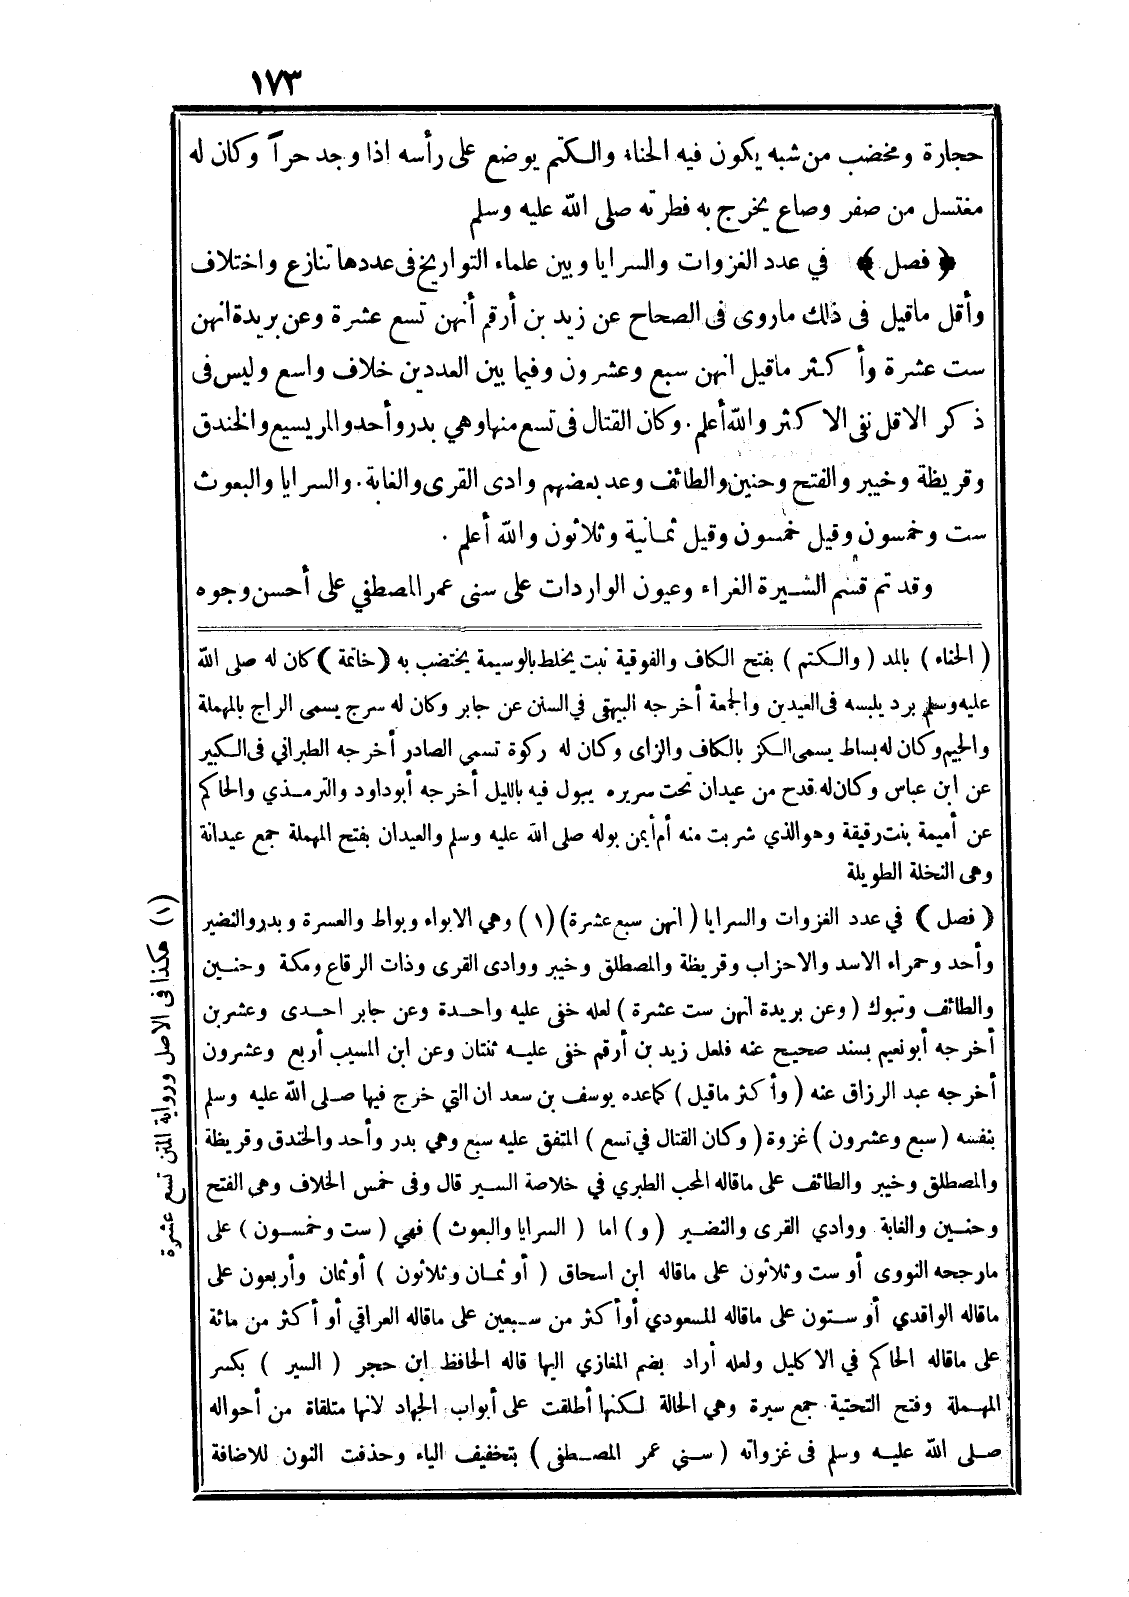 ١٧٣
حجارة ومخضب من شبه يكون فيه الحناء والكتم يوضع على رأسه اذا وجد حراً وكان له
مغتسل من صفر وصاع يخرج به فطرته صلى الله عليه وسلم
﴿ فصل ﴾ في عدد الغزوات والسرايا وبين علماء التواريخ فى عددها تنازع واختلاف
وأقل ماقيل فى ذلك ماروى فى الصحاح عن زيد بن أرقم أنهن تسع عشرة وعن بريدة انهن
ست عشرة وأكثر ماقيل انهن سبع وعشرون وفيما بين العددين خلاف واسع وليس فى
ذكر الاقل نفى الاكثر والله أعلم. وكان القتال فى تسع منها وهي بدر وأحد والمريسيع والخندق
وقريظة وخيبر والفتح وحنين والطائف وعد بعضهم وادى القرى والغابة. والسرايا والبعوث
ست وخمسون وقيل خمسون وقيل ثمانية وثلاثون والله أعلم .
وقد تم قسم السيرة الغراء وعيون الواردات على سنى عمر المصطفي على أحسن وجوه
( الحناء ) بالمد ( والكتم ) بفتح الكاف والفوقية نبت يخلط بالوسيمة يختضب به ﴿ خاتمة ﴾ كان له صلى الله
عليه وسلم برد يلبسه فى العيدين والجمعة أخرجه البيهقى في السنن عن جابر وكان له سرج يسمى الراج بالمهملة
والجيم وكان له بساط يسمى الكز بالكاف والزاى وكان له ركوة تسمى الصادر أخرجه الطبراني فى الكبير
عن ابن عباس وكان له قدح من عيدان تحت سريره يبول فيه بالليل أخرجه أبو داود والترمذي والحاكم
عن أميمة بنت رقيقة وهو الذي شربت منه أم أيمن بوله صلى الله عليه وسلم والعيدان بفتح المهملة جمع عيدانة
وهى النخلة الطويلة
﴿ فصل ﴾ في عدد الغزوات والسرايا ( انهن سبع عشرة ) (١) وهي الابواء وبواط والعسرة وبدر والنضير
وأحد وحمراء الاسد والاحزاب وقريظة والمصطلق وخيبر ووادى القرى وذات الرقاع ومكة وحنين
والطائف وتبوك ( وعن بريدة انهن ست عشرة ) لعله خفى عليه واحدة وعن جابر احدى وعشرين
أخرجه أبو نعيم بسند صحيح عنه فلعل زيد بن أرقم خفى عليه ثنتان وعن ابن المسيب أربع وعشرون
أخرجه عبد الرزاق عنه ( وأكثر ماقيل ) كما عده يوسف بن سعد ان التي خرج فيها صلى الله عليه وسلم
بنفسه ( سبع وعشرون ) غزوة ( وكان القتال في تسع ) المتفق عليه سبع وهي بدر وأحد والخندق وقريظة
والمصطلق وخيبر والطائف على ماقاله المحب الطبري في خلاصة السير قال وفى خمس الخلاف وهى الفتح
وحنين والغابة ووادي القرى والنضير ( و ) اما ( السرايا والبعوث ) فهي ( ست وخمسون ) على
مارجحه النووى أو ست وثلاثون على ماقاله ابن اسحاق ( أو ثمان وثلاثون ) أو ثمان وأربعون على
ماقاله الواقدي أو ستون على ماقاله المسعودي أو أكثر من سبعين على ماقاله العراقي أو أكثر من مائة
على ماقاله الحاكم في الاكليل ولعله أراد بضم المغازي اليها قاله الحافظ ابن حجر ( السير ) بكسر
المهملة وفتح التحتية جمع سيرة وهي الحالة لكنها أطلقت على أبواب الجهاد لانها متلقاة من أحواله
صلى الله عليه وسلم فى غزواته ( سني عمر المصطفى ) بتخفيف الياء وحذفت النون للاضافة
(١) هكذا فى الاصل ورواية المتن تسع عشرة